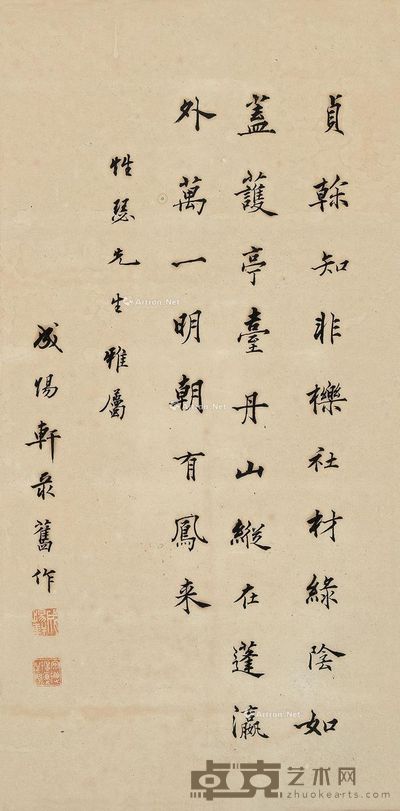 貞榦知非櫟社材綠陰如
蓋護亭臺丹山縱在蓬瀛
外萬一明朝有鳳來
性瑟先生雅屬
成惕軒录舊作
Artron.Net
卓克艺术网
www.zhuokearts.com